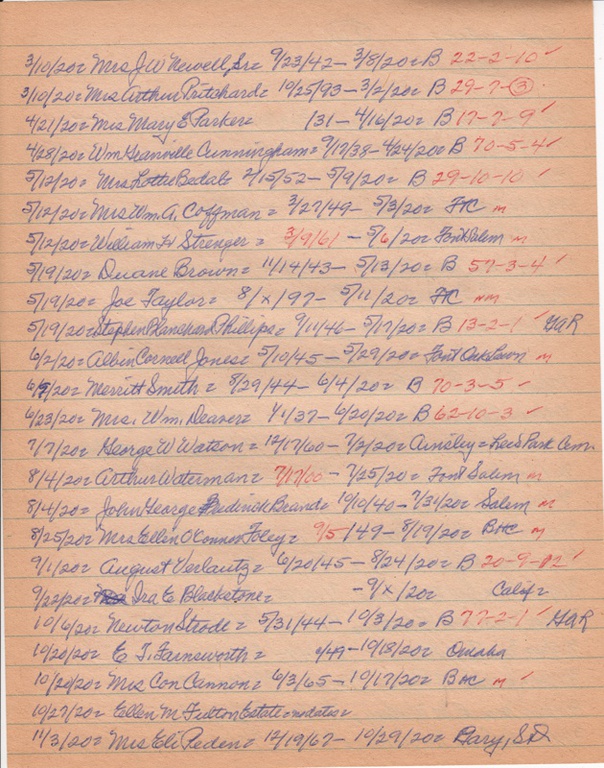 3/10/20= Mrs J W Newell, Sr= 9/23/42 - 3/8/20= B 22-2-10 ✓
3/10/20= Mrs Arthur Pritchard= 10/25/93 - 3/2/20= B 29-7-3
4/21/20= Mrs Mary E Parker= /31 - 4/16/20= B 17-7-9 ✓
4/28/20= Wm Granville Cunningham= 9/17/38 - 4/24/20= B 70-5-4 ✓
5/12/20= Mrs Lottie Bedal= 2/15/52 - 5/9/20= B 29-10-10 ✓
5/12/20= Mrs Wm A. Coffman= 3/27/49 - 5/3/20= FC m
5/12/20= William H Strenger= 3/9/61 - 5/6/20= Font Salem m
5/19/20= Duane Brown= 11/14/43 - 5/13/20= B 57-3-4 ✓
5/19/20= Joe Taylor= 8/x/97 - 5/11/20= FC m
5/19/20= Stephen Blanchard Phillips= 9/11/46 - 5/17/20= B 13-2-1 ✓ GAR
6/2/20= Albin Cornell Jones= 5/10/45 - 5/29/20= Font Oak Lawn m
6/9/20= Merritt Smith= 8/29/44 - 6/4/20= B 70-3-5 ✓
6/23/20= Mrs. Wm. Deaver= 4/1/37 - 6/20/20= B 62-10-3 ✓
7/7/20= George W Watson= 12/17/60 - 7/2/20= Ainsley= Cem.
8/4/20= Arthur Waterman= 7/17/00 - 7/25/20= Font Salem m
8/4/20= John George Brand= 10/10/40 - 7/31/20= Salem m
8/25/20= Mrs Ellen O'Connor Foley= 9/5/49 - 8/19/20= B m
9/1/20= August Verlautz= 6/20/45 - 8/24/20= B 20-9-12 ✓
9/22/20= Ira E Blackstone= - 9/x/20= Calif=
10/6/20= Newton Strode= 5/31/44 - 10/3/20= B 77-2-1 ✓ GAR
10/20/20= E T. Farnsworth= /49 - 10/18/20= Omaha
10/20/20= Mrs Con Cannon= 6/3/65 - 10/17/20= B m ✓
10/27/20= Ellen M Fetton Estate= no dates=
11/3/20= Mrs Eli Peden= 12/19/67 - 10/29/20= Gary, S D